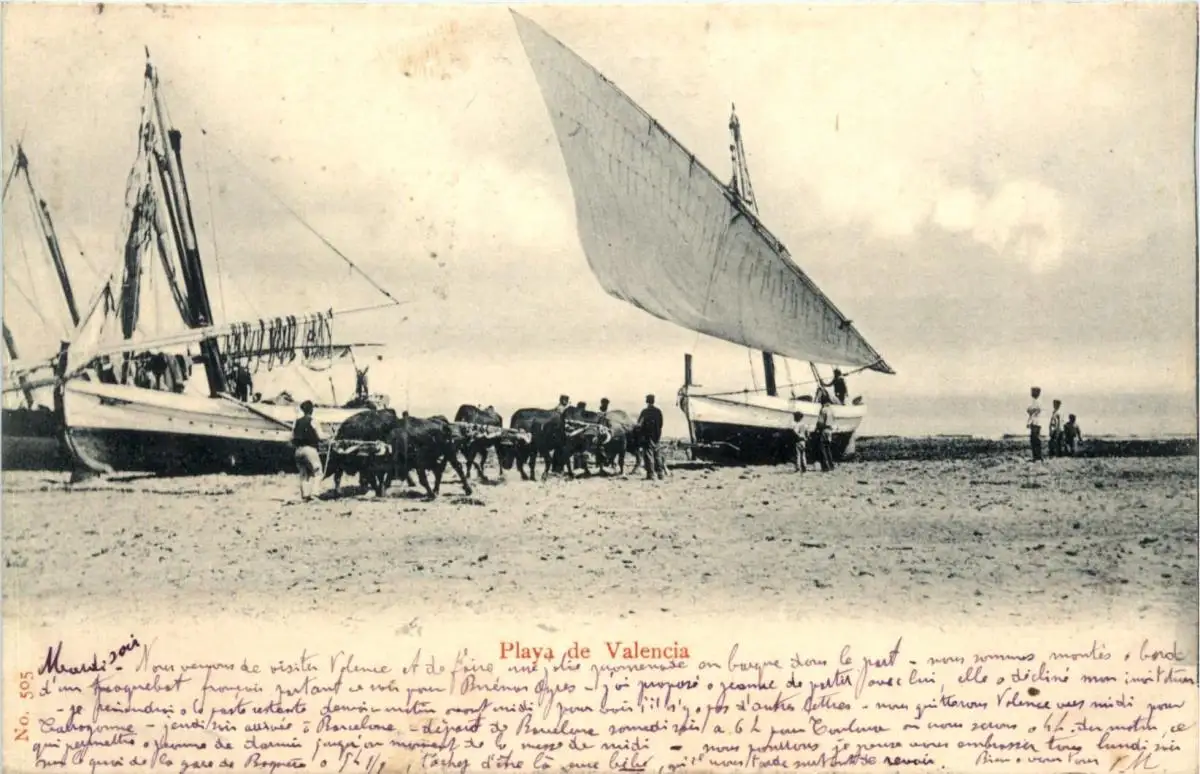 Playa de Valencia
No. 505
Mardi soir - Nous venons de visiter Valence et de faire une jolie promenade en barque dans le port - nous sommes montés à bord
d'un paquebot français partant ce soir pour Buenos Ayres - j'ai proposé à Jeanne de partir avec lui, elle a décliné mon invitation
- je passerai à la poste restante demain matin avant midi pour voir s'il n'y a pas d'autres lettres - nous quitterons Valence vers midi pour
Tarragonne - jeudi soir arrivée à Barcelone - départ de Barcelone samedi soir à 6h pour Toulouse où nous serons à 4h du matin, ce
qui permettra à Jeanne de dormir jusqu'au moment de la messe de midi - nous pourrons je pense vous embrasser tous lundi soir
sur le quai de la gare de à 5h 1/2, tachez d'être là avec bébé, qu'il nous tarde surtout de revoir. Bien à vous tous M.